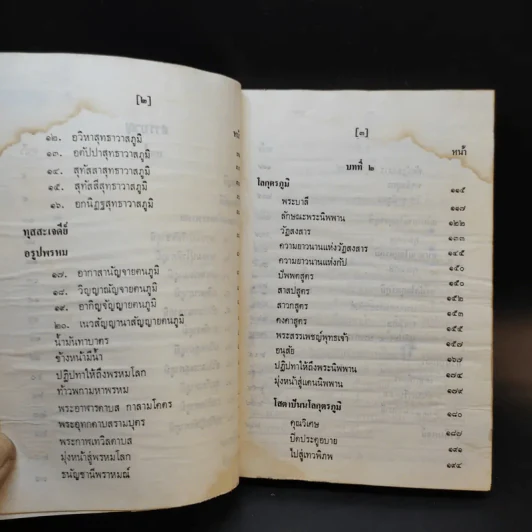 [๒]
๑๒. อวิหาสุทธาวาสภูมิ
๑๓. อตัปปาสุทธาวาสภูมิ
๑๔. สุทัสสาสุทธาวาสภูมิ
๑๕. สุทัสสีสุทธาวาสภูมิ
๑๖. อกนิฏฐสุทธาวาสภูมิ
ทุสสะเจดีย์
อรูปพรหม
๑๗. อากาสานัญจายตนภูมิ
๑๘. วิญญาณัญจายตนภูมิ
๑๙. อากิญจัญญายตนภูมิ
๒๐. เนวสัญญานาสัญญายตนภูมิ
น้ำมันทาบาตร
ช้างหน้ามีน้ำ
ปฏิปทาให้ถึงพรหมโลก
ท้าวพกามหาพรหม
พระอาฬารดาบส กาลามโคตร
พระอุททกดาบสรามบุตร
พระกาฬเทวิลดาบส
มุ่งหน้าสู่พรหมโลก
ธนัญชานีพราหมณ์
[๓]
หน้า
บทที่ ๒
โลกุตรภูมิ ๑๑๕
พระบาลี ๑๑๗
ลักษณะพระนิพพาน ๑๒๒
วัฏสงสาร ๑๓๓
ความยาวนานแห่งวัฏสงสาร ๑๔๕
ความยาวนานแห่งกัป ๑๕๐
ปัพพตสูตร ๑๕๐
สาสปสูตร ๑๕๒
สาวกสูตร ๑๕๓
คงคาสูตร ๑๕๔
พระสรรเพชญ์พุทธเจ้า ๑๕๕
อนุสัย ๑๖๗
ปฏิปทาให้ถึงพระนิพพาน ๑๗๔
มุ่งหน้าสู่แดนนิพพาน ๑๗๔
โสดาบันนโลกุตรภูมิ ๑๘๐
คุณวิเศษ ๑๘๗
ปิดประตูอบาย ๑๙๑
ไปสู่เทวพิภพ ๑๙๔